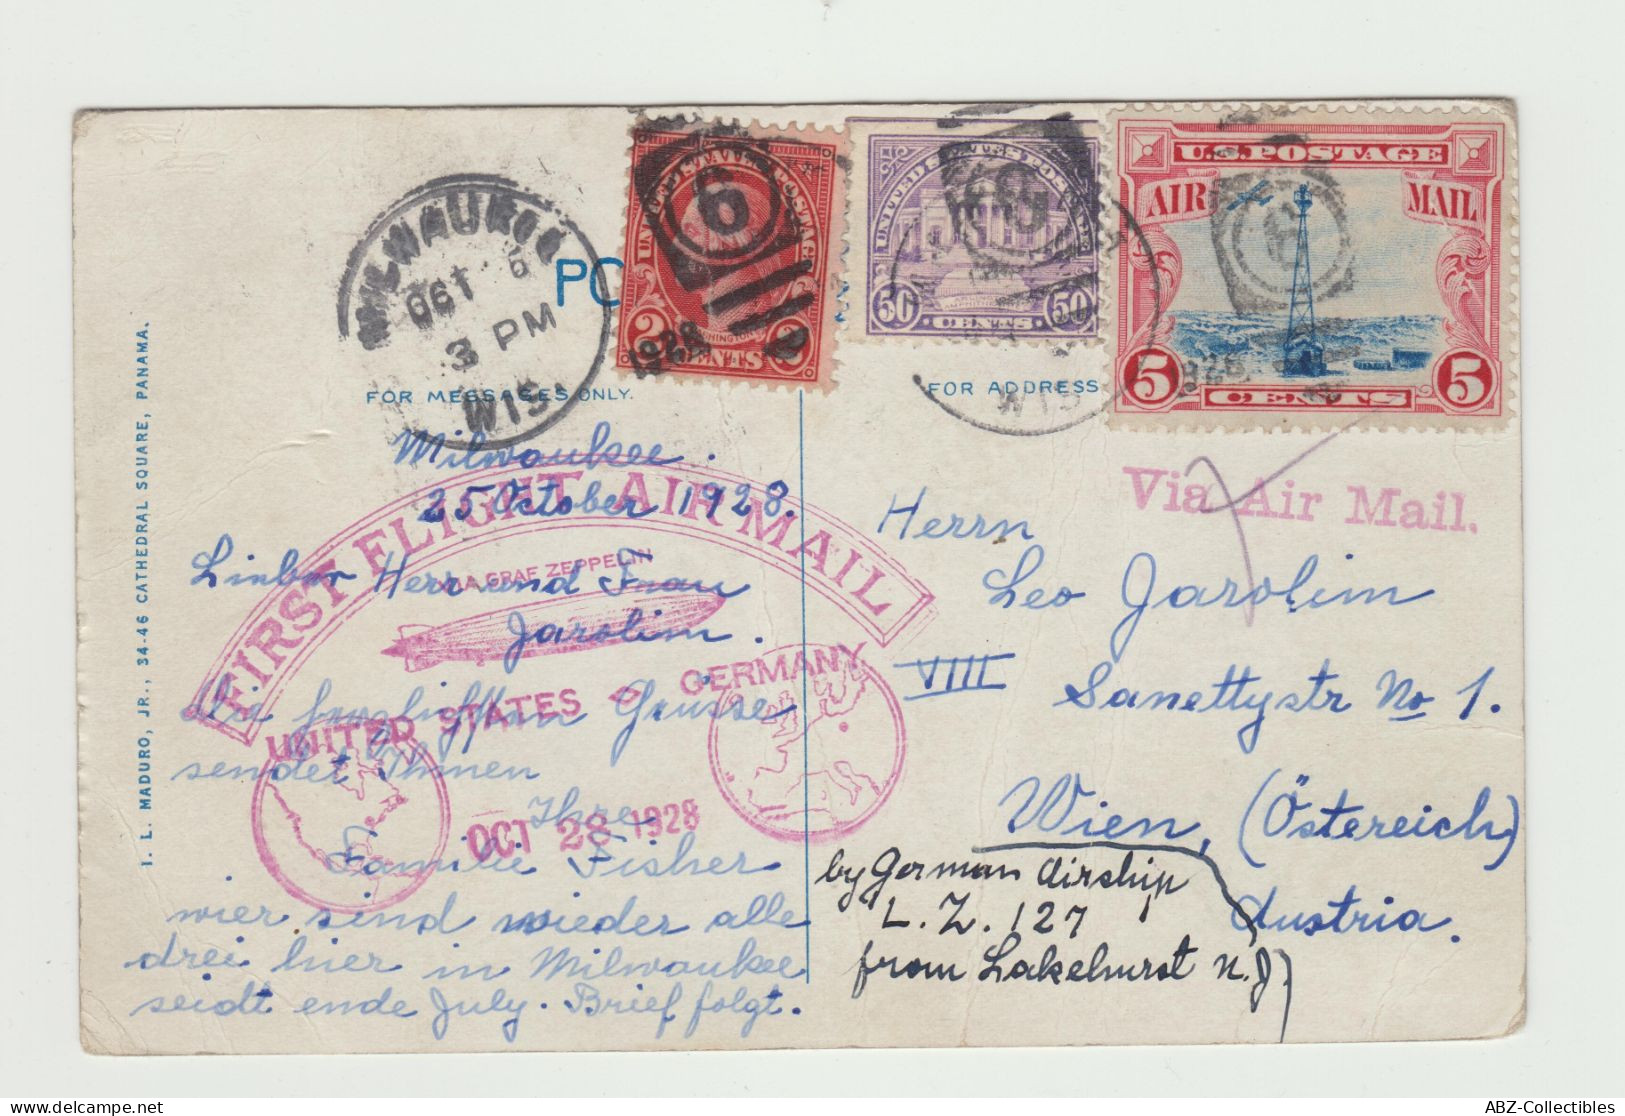 MILWAUKEE
OCT 6
3 PM
WIS.
1928
PO
UNITED STATES POSTAGE
2 CENTS 2
UNITED STATES POSTAGE
50 CENTS 50
U.S. POSTAGE
AIR MAIL
5 CENTS 5
WIS
FOR MESSAGES ONLY.
FOR ADDRESS
Via Air Mail.
I. L. MADURO, JR., 34-46 CATHEDRAL SQUARE, PANAMA.
FIRST FLIGHT AIR MAIL
VIA GRAF ZEPPELIN
UNITED STATES GERMANY
OCT 28 1928
Milwaukee.
25 October 1928.
Lieber Herr und Frau
Jarolim.
herzlichsten Grüsse
sendet Ihnen
Ihre
Familie Fisher
wier sind wieder alle
drei hier in Milwaukee
seidt ende July. Brief folgt.
Herrn
Leo Jarolim
VIII Sanettystr No 1.
Wien, (Östereich)
Austria.
by German Airship
L.Z. 127
from Lakehurst N.J.
ABZ-Collectibles